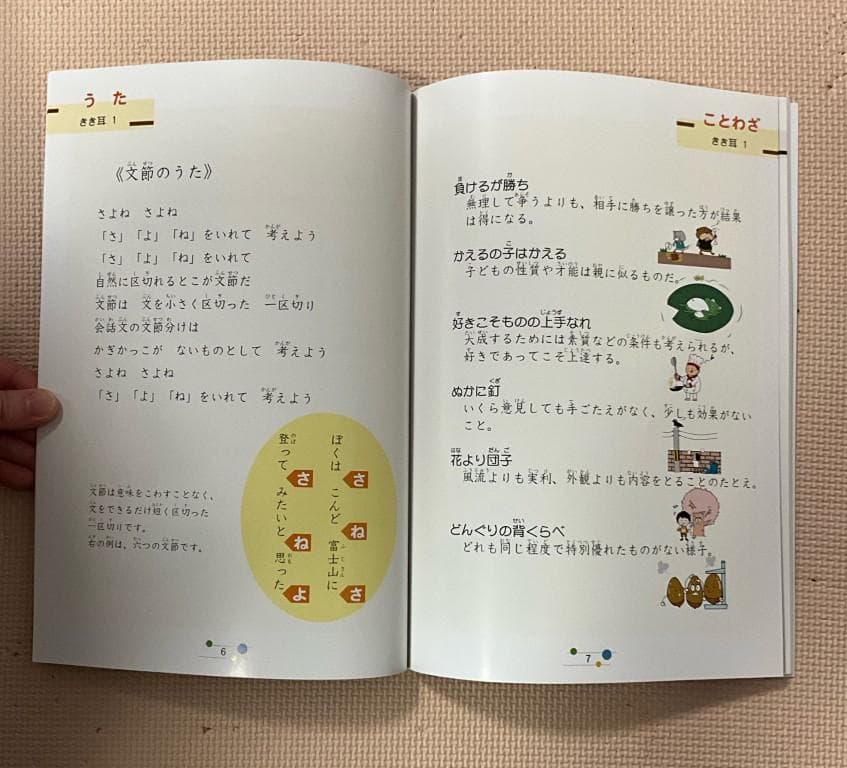 うた
きき耳 1
《文節のうた》
さよね さよね
「さ」「よ」「ね」をいれて 考えよう
「さ」「よ」「ね」をいれて
自然に区切れるとこが文節だ
文節は 文を小さく区切った 一区切り
会話文の文節分けは
かぎかっこが ないものとして 考えよう
さよね さよね
「さ」「よ」「ね」をいれて 考えよう
ぼくは さ こんど ね 富士山に さ
登って さ みたいと ね 思った よ
文節は意味をこわすことなく、
文をできるだけ短く区切った
一区切りです。
右の例は、六つの文節です。
6
ことわざ
きき耳 1
負けるが勝ち
無理して争うよりも、相手に勝ちを譲った方が結果
は得になる。
かえるの子はかえる
子どもの性質や才能は親に似るものだ。
好きこそものの上手なれ
大成するためには素質などの条件も考えられるが、
好きであってこそ上達する。
ぬかに釘
いくら意見しても手ごたえがなく、少しも効果がない
こと。
花より団子
風流よりも実利、外観よりも内容をとることのたとえ。
どんぐりの背くらべ
どれも同じ程度で特別優れたものがない様子。
7